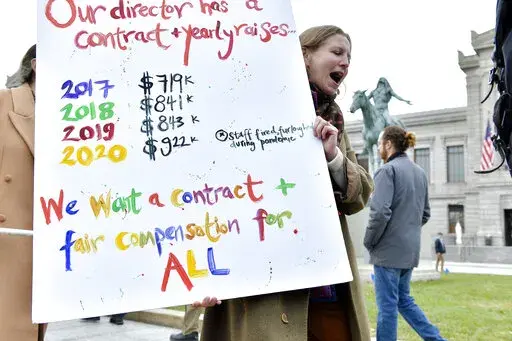 Our director has a
contract + yearly raises...
2017 $719K
2018 $841K
2019 $843K
2020 $922K
* staff fired, furloughed
during pandemic
We Want a contract +
fair compensation for
ALL